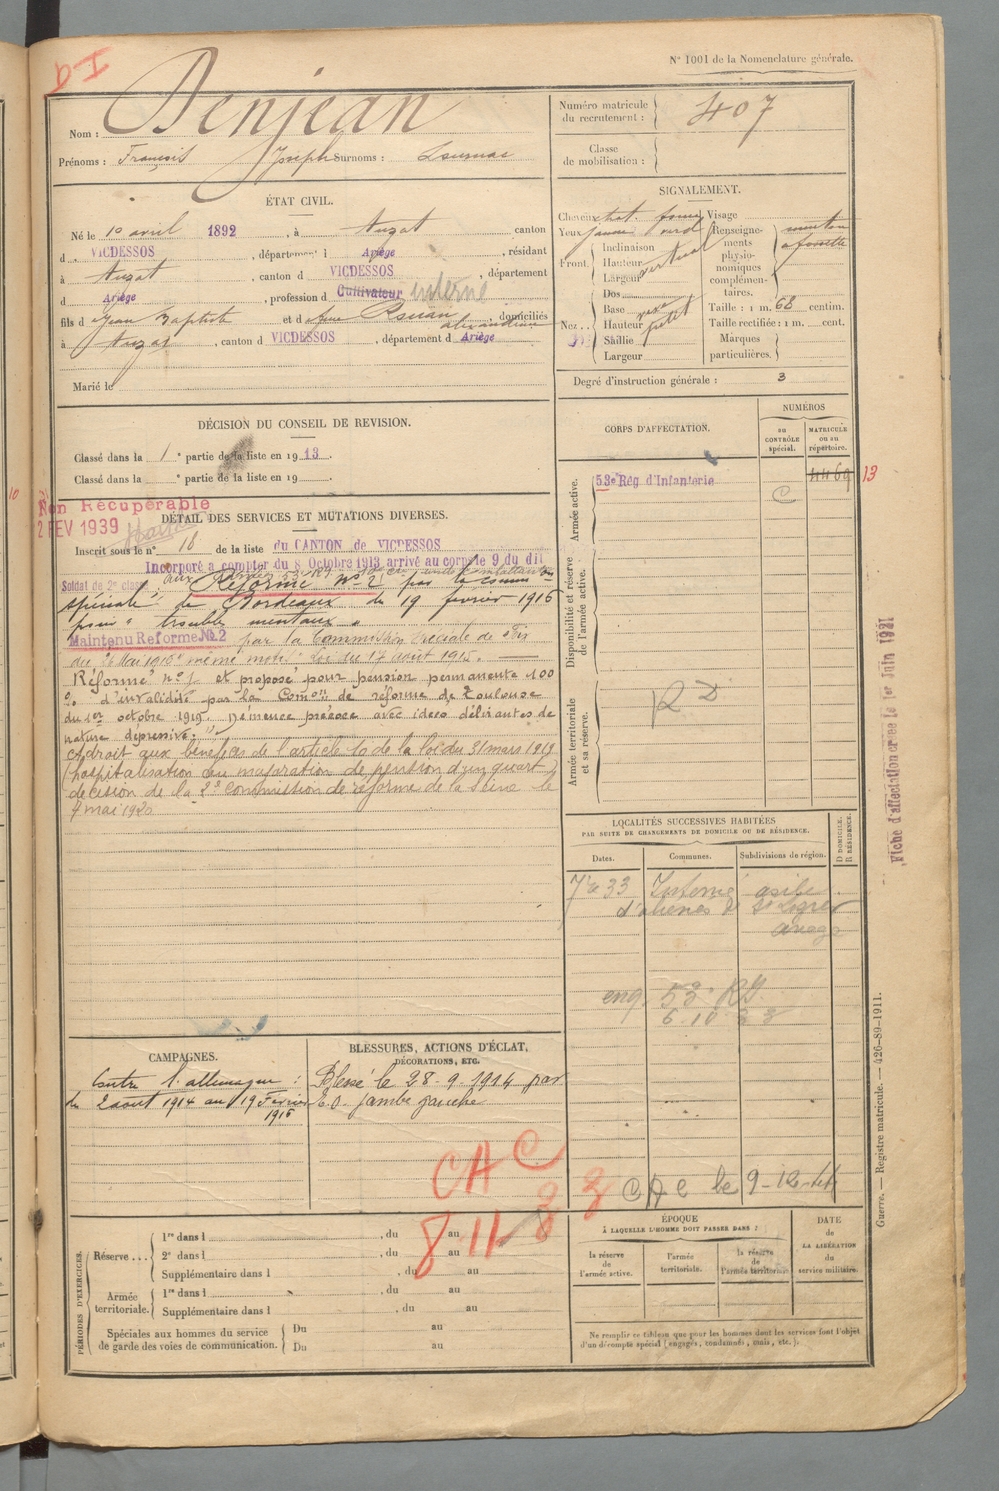 N° 1001 de la Nomenclature générale.
D I
Nom : Denjean
Prénoms : François Joseph Surnoms :
Numéro matricule du recrutement : 407
Classe de mobilisation :
ÉTAT CIVIL.
Né le 10 avril 1892, à Auzat canton
d VICDESSOS, département d Ariège, résidant
à Auzat, canton d VICDESSOS, département
d Ariège, profession d Cultivateur interné
fils d Jean Baptiste et d domiciliés
à Auzat, canton d VICDESSOS, département d Ariège
Marié le
SIGNALEMENT.
Cheveux chat. foncé
Yeux jaune verd
Front.
Inclinaison vertical
Hauteur
Largeur
Nez..
Dos
Base
Hauteur
Saillie petit
Largeur
Visage
Renseignements physionomiques complémentaires. menton à fossette
Taille : 1 m. 68 centim.
Taille rectifiée : 1 m. cent.
Marques particulières.
Degré d'instruction générale : 3
DÉCISION DU CONSEIL DE REVISION.
Classé dans la 1e partie de la liste en 1913.
Classé dans la e partie de la liste en 19
Non Récupérable
2 FEV 1939
DÉTAIL DES SERVICES ET MUTATIONS DIVERSES.
Inscrit sous le n° 18 de la liste du CANTON de VICDESSOS
Incorporé à compter du 8 Octobre 1913 arrivé au corps le 9 du dit
Soldat de 2e classe
Réformé n° 2 par la commission
spéciale de Bordeaux du 19 février 1916
pour " troubles mentaux "
Maintenu Réforme No 2 par la Commission spéciale de
du 26 Mai 1916 même motif. Loi du 17 août 1915.
Réformé n° 1 et proposé pour pension permanente 100
% d'invalidité par la Comon de réforme de Toulouse
du 1er octobre 1919. Démence précoce avec idées délirantes de
nature dépressive.
A droit aux bénéfices de l'article 10 de la loi du 31 mars 1919
(hospitalisation ou majoration de pension d'un quart)
décision de la 2e Commission de réforme de la Seine le
4 mai 1920
CORPS D'AFFECTATION.
NUMÉROS
au contrôle spécial.
MATRICULE ou au répertoire.
Armée active.
53e Rég d'Infanterie
C
4469
13
10
Disponibilité et réserve de l'armée active.
Armée territoriale et sa réserve.
R D
Fiche d'affectation créée le 1er Juin 1921
LOCALITÉS SUCCESSIVES HABITÉES
PAR SUITE DE CHANGEMENTS DE DOMICILE OU DE RÉSIDENCE.
Dates. Communes. Subdivisions de région. D DOMICILE. R RÉSIDENCE.
33 Interné asile
d'aliénés de St Lizier
Ariège
53e RI
CAC le 9-12-44
CAMPAGNES.
Contre l'allemagne :
du 2 août 1914 au 19 Février
1916
BLESSURES, ACTIONS D'ÉCLAT,
DÉCORATIONS, ETC.
Blessé le 28-9-1914 par
E.O. jambe gauche
CAC
8 11 33
PÉRIODES D'EXERCICES.
Réserve ...
1re dans l , du au
2e dans l , du au
Supplémentaire dans l , du au
Armée territoriale.
1re dans l , du au
Supplémentaire dans l , du au
Spéciales aux hommes du service
de garde des voies de communication.
Du au
Du au
ÉPOQUE
À LAQUELLE L'HOMME DOIT PASSER DANS :
la réserve de l'armée active.
l'armée territoriale.
la réserve de l'armée territoriale.
DATE de LA LIBÉRATION du service militaire.
Ne remplir ce tableau que pour les hommes dont les services font l'objet
d'un décompte spécial (engagés, condamnés, omis, etc.).
Guerre. — Registre matricule. — 426-89-1911.